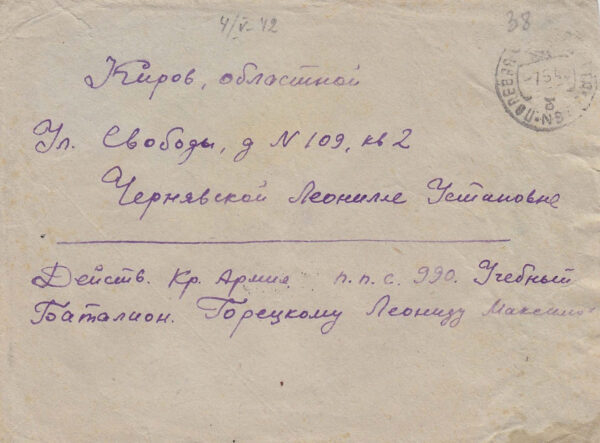 4/V-42
38
Киров, областной
Ул. Свободы, д N 109, кв 2
Чернявской Леонилле Установне
Действ. Кр. Армия п.п.с. 990. Учебный
Баталион. Горецкому Леониду Максимо